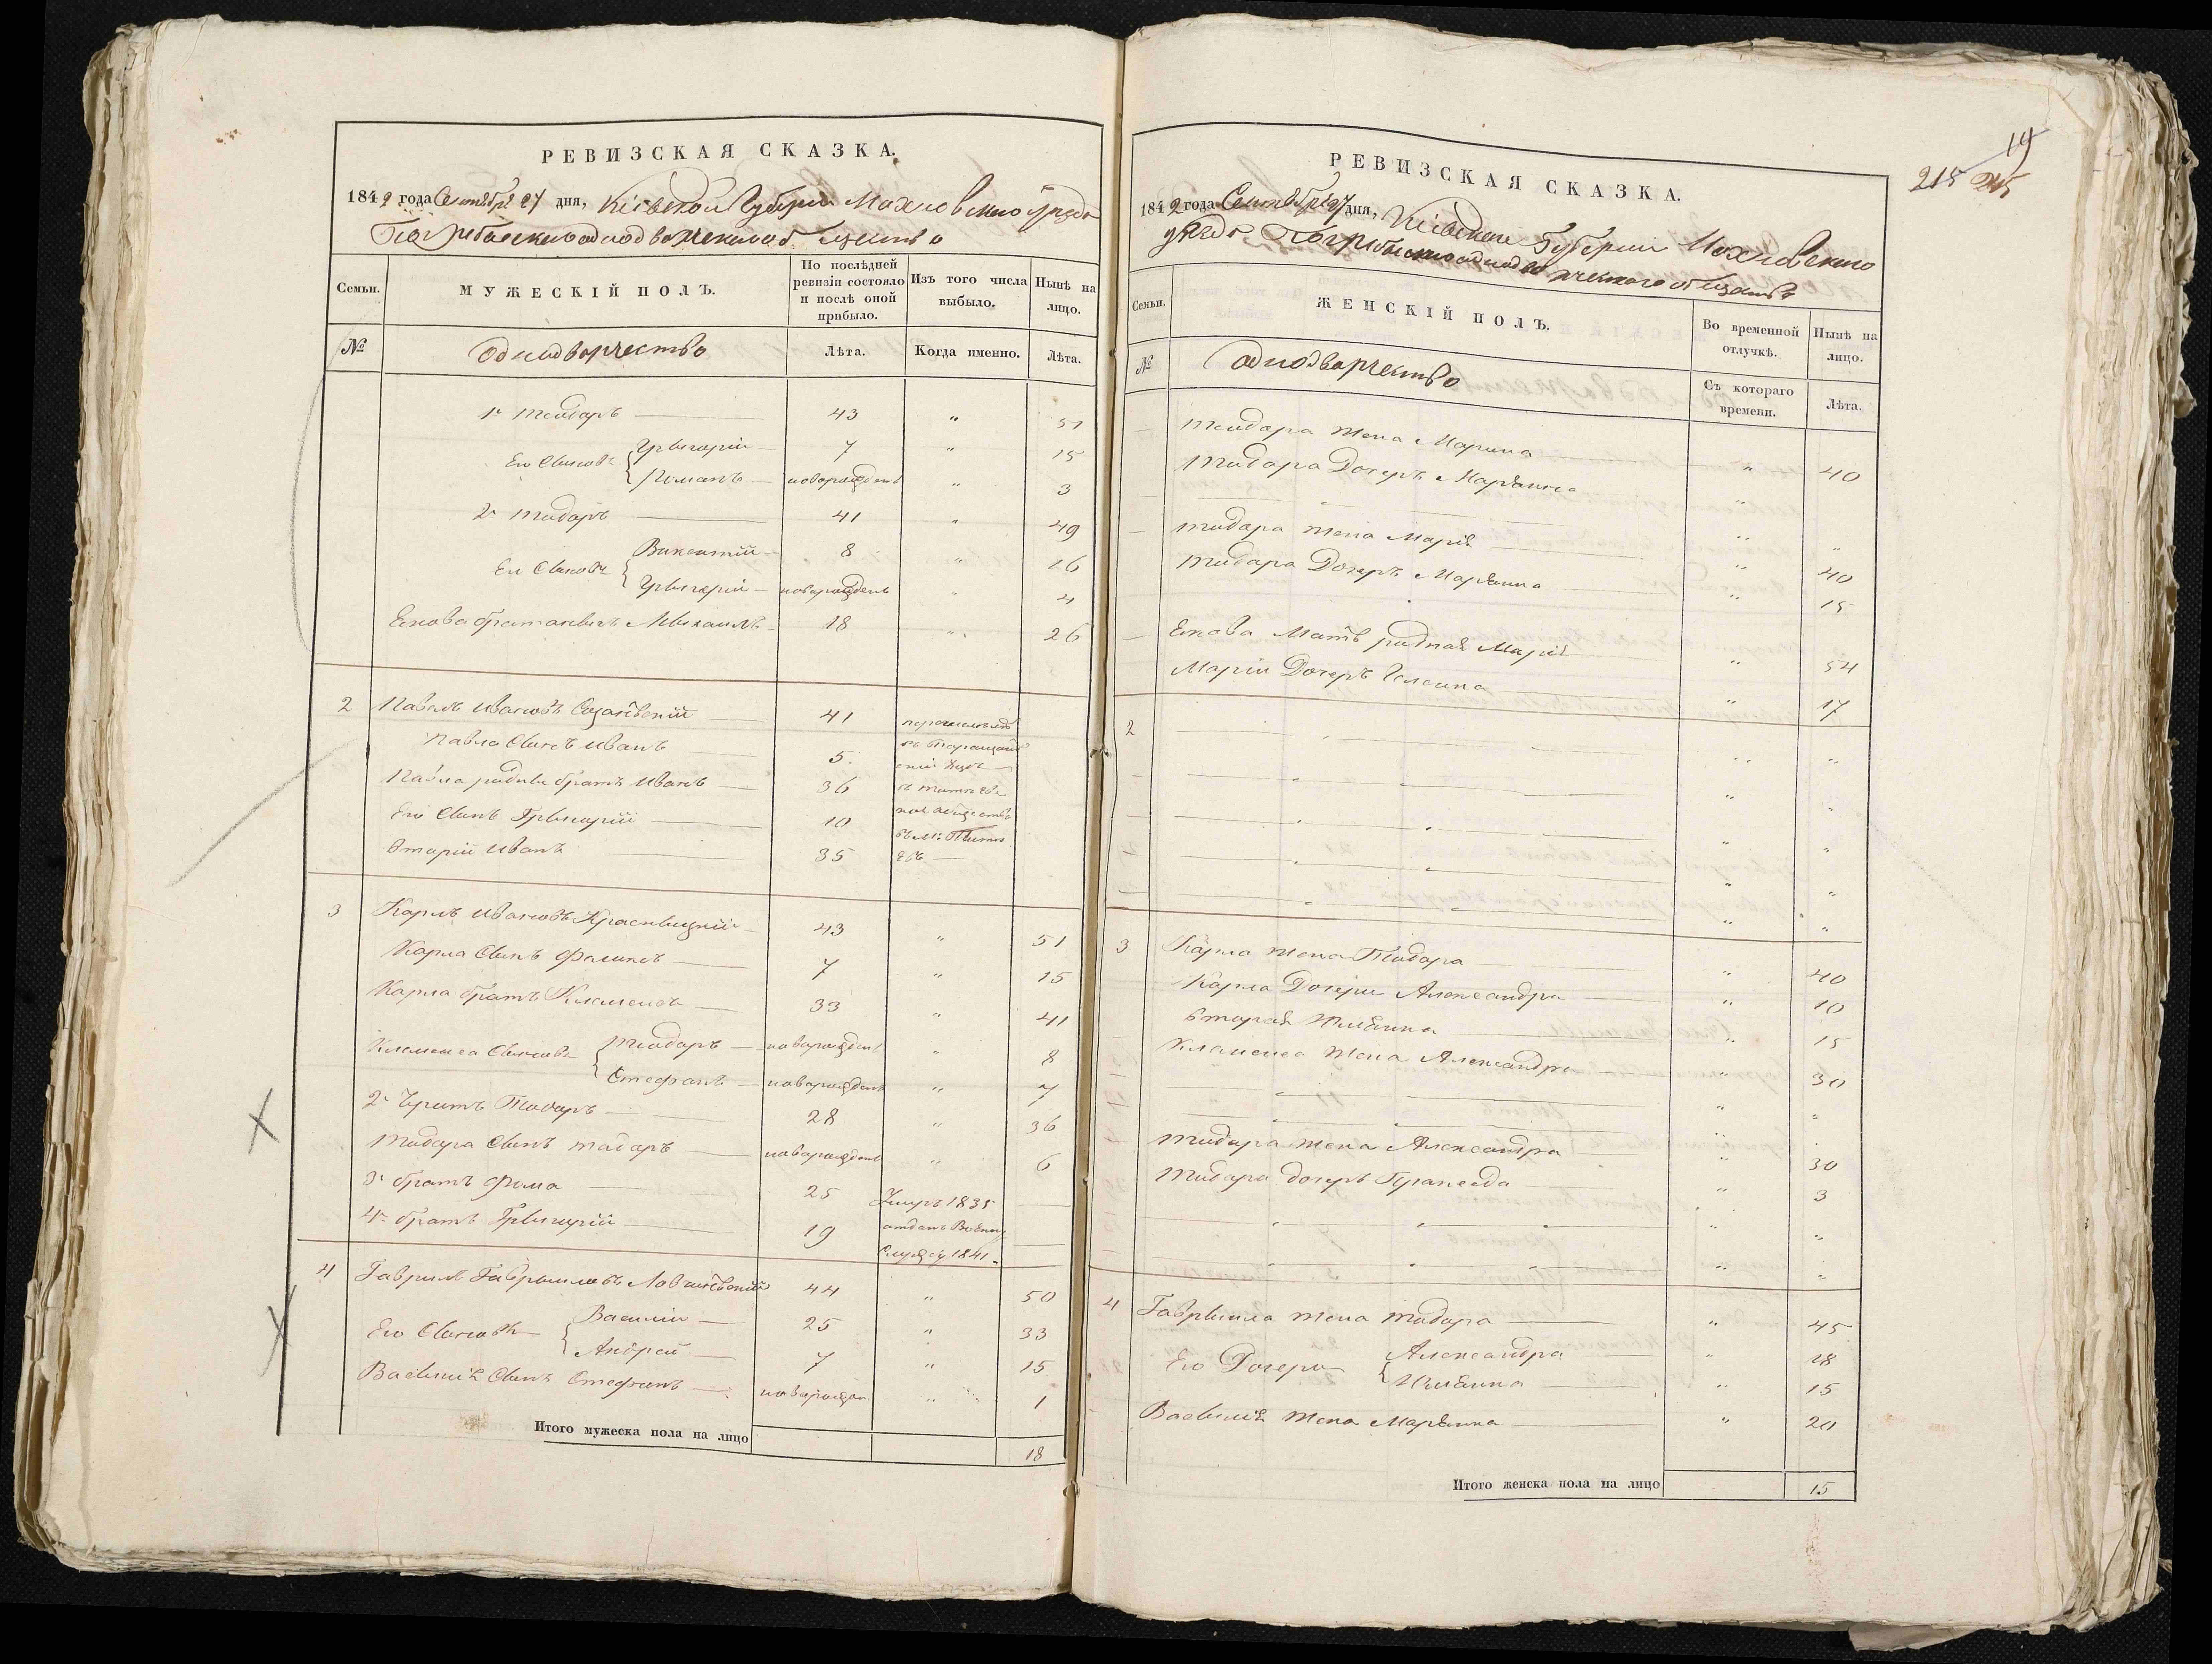 РЕВИЗСКАЯ СКАЗКА.
1842 года Сентября 27 дня, Кіевской Губерніи Махновского уезда
Погребыскаго однодворческаго общества
Семьи.
МУЖЕСКІЙ ПОЛЪ.
По послѣдней ревизіи состояло и послѣ оной прибыло.
Изъ того числа выбыло.
Нынѣ на лицо.
№
однодворчество
Лѣта.
Когда именно.
Лѣта.
1й Тиодоръ 43 " 51
Его Сыновя Грыгорій 7 " 15
Романъ новорожденъ " 3
2й Тиодоръ 41 " 49
Его Сыновя Викентій 8 " 16
Грыгерій новорожденъ " 4
Михаилъ 18 " 26
2 Павелъ Ивановъ 41
Павла Сынъ Иванъ 5
Павла родный братъ Иванъ 36
Его Сынъ Грыгорій 10
вторій Иванъ 35
3 Карлъ Ивановъ Красньицкій 43 " 51
Карла Сынъ Феликсъ 7 " 15
Карла братъ Клеменсъ 33 " 41
Клеменса Сыновя Тиодоръ новорожденъ " 8
Стефанъ новорожденъ " 7
2й братъ Тиодоръ 28 " 36
Тиодора Сынъ Тиодоръ новорожденъ " 6
3й братъ Фома 25 Умеръ 1835
4й братъ Грыгорій 19 отданъ Военну
Службу 1841
4 Гаврилъ Гаврыиловъ 44 " 50
Его Сыновя Василій 25 " 33
Андрей 7 " 15
Васылія Сынъ Стефанъ новорожден " 1
Итого мужеска пола на лицо 18
14
215 215
РЕВИЗСКАЯ СКАЗКА.
1842 года Сентября 27 дня, Кіевской Губерніи Махновскаго
уезда Погребыскаго однодворческаго общества
Семьи.
ЖЕНСКІЙ ПОЛЪ.
Во временной отлучкѣ.
Нынѣ на лицо.
№
однодворчество
Съ котораго времени.
Лѣта.
Тиодора жена Марина " 40
Тиодора Дочеръ Маріянна "
Тиодора жена Марія " 40
Тиодора Дочеръ Маріянна " 15
Мать родная Марія " 54
Маріи Дочеръ " 17
2
3 Карла жена Тиодора " 40
Карла Дочери Александра " 10
вторая Юліянна " 15
Клеменса жена Александра " 30
Тиодора жена Александра " 30
Тиодора дочеръ Праксeда " 3
4 Гаврыила жена Тиодора " 45
Его Дочери Александра " 18
Юліянна " 15
Васылія жена Маріянна " 20
Итого женска пола на лицо 15